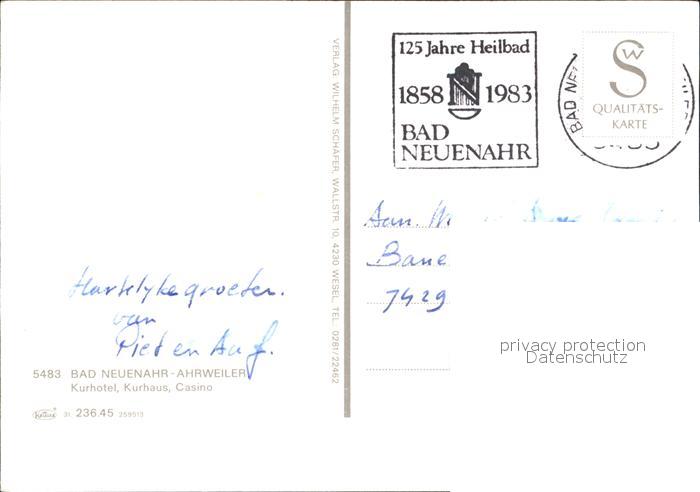 125 Jahre Heilbad
1858 1983
BAD
NEUENAHR
SW
QUALITÄTS-
KARTE
BAD NE
VERLAG: WILHELM SCHÄFER, WALLSTR. 10, 4230 WESEL, TEL. 0281/22462
Aan.
Bane
7429
Hartelyke groeten.
van
Piet en
5483 BAD NEUENAHR-AHRWEILER
Kurhotel, Kurhaus, Casino
31 236.45 259513
privacy protection
Datenschutz